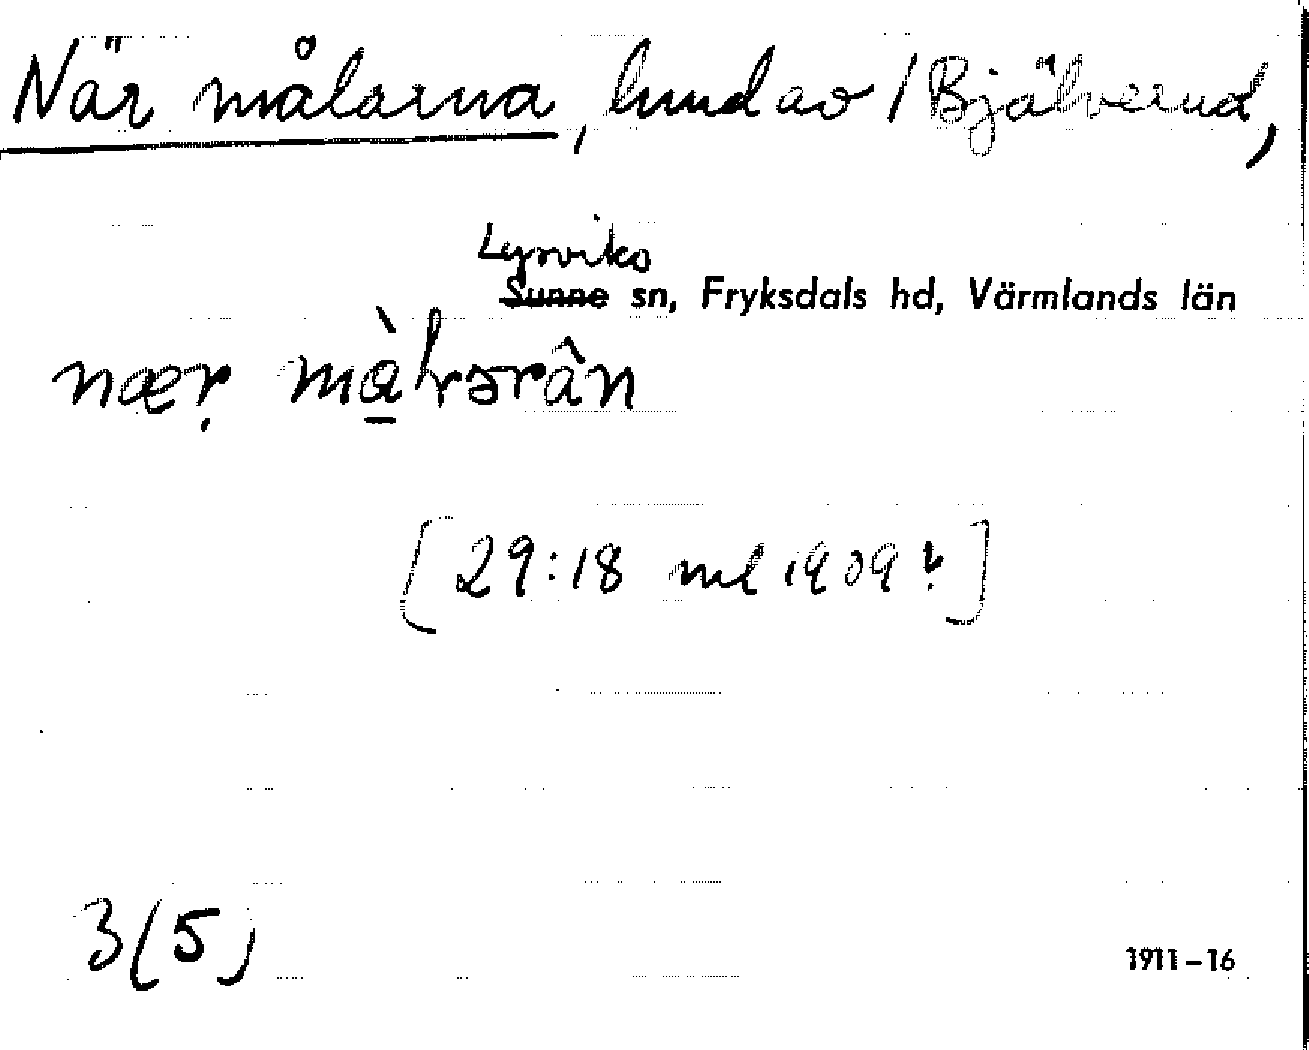 När målarna, hund av / Bjälverud,
Lysviks
Sunne sn, Fryksdals hd, Värmlands län
næṛ mà̱lrərân
[29:18 ml 1909?]
3(5)
1911–16